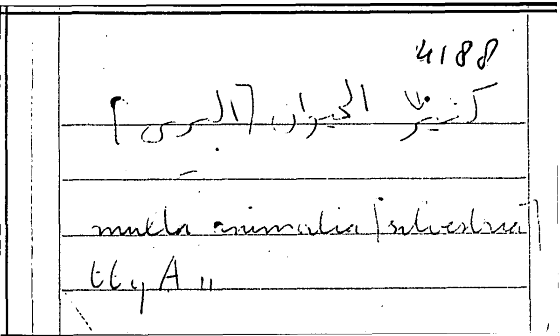 4188
كثيرا الحيوان [البرى]
multa animalia [silvestria]